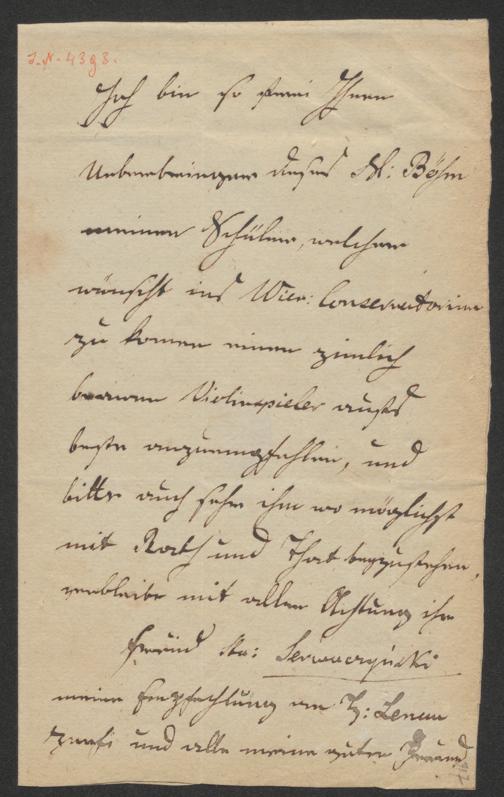 J.N. 4398.
Ich bin so frei Ihnen
Ueberbringer dieses H: Böhm
meinen Schüler, welcher
wünscht ins Wien: Conservatorium
zu komen einen zimlich
braven Violinspieler aufs
beste anzuempfehlen, und
bitte auch sehr ihm wo möglichst
mit Rath und That beyzustehen,
verbleibe mit aller Achtung ihr
Freund Sta: Serwaczyński
meine Empfehlung an H:
und alle meine guten Freund